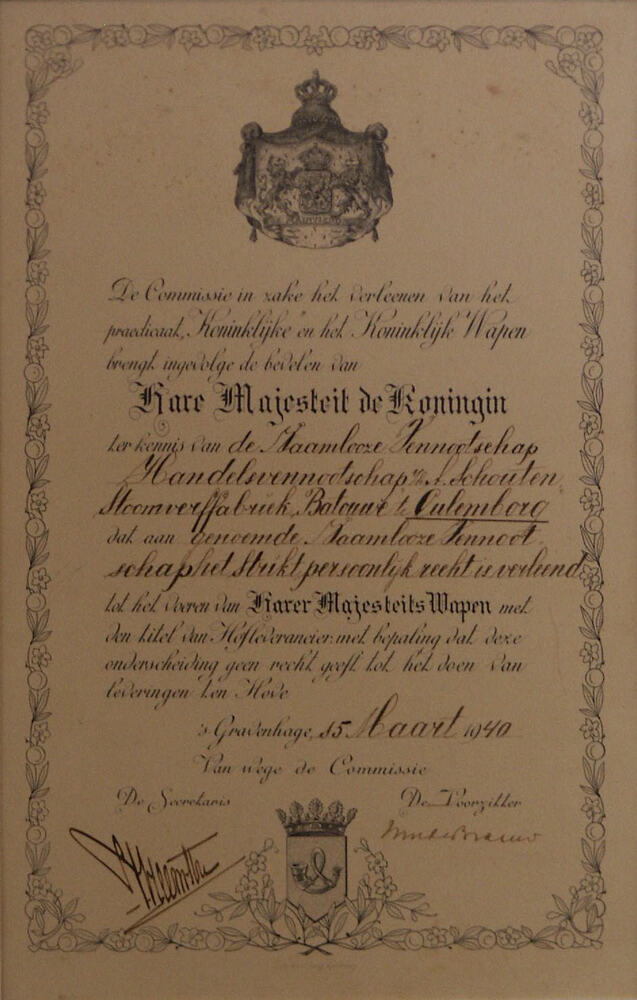 De Commissie in zake het verleenen van het
praedicaat „Koninklijke" en het Koninklijk Wapen
brengt ingevolge de bevelen van
Hare Majesteit de Koningin
ter kennis van de Naamlooze Vennootschap
Handelsvennootschap v/h A. Schouten,
Stoomverffabriek „Batouwe" te Culemborg
dat aan genoemde Naamlooze Vennoot
schap het strikt persoonlijk recht is verleend
tot het voeren van Harer Majesteits Wapen met
den titel van Hofleverancier, met bepaling dat deze
onderscheiding geen recht geeft tot het doen van
leveringen ten Hove
's Gravenhage, 15 Maart 1940
Van wege de Commissie
De Secretaris De Voorzitter